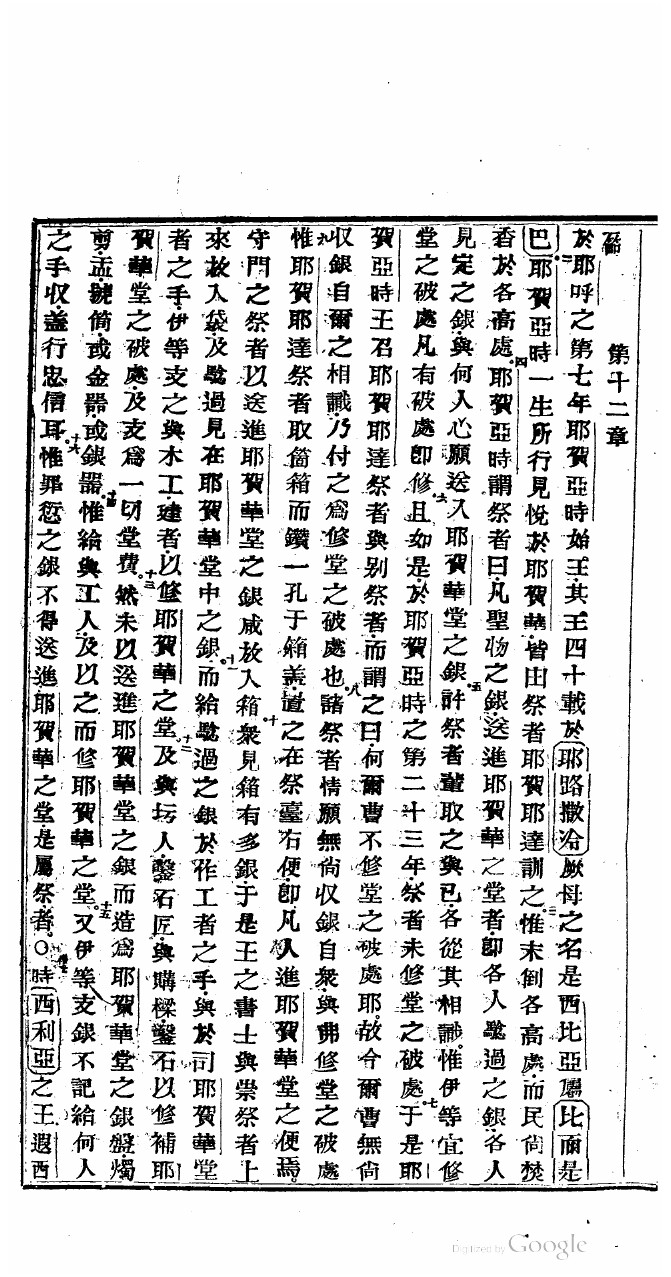 第十二章
於耶呼之第七年耶賀亞時始王其王四十載於耶路撒冷厥母之名是西比亞屬比而是
二
巴耶賀亞時一生所行見悅於耶賀華皆由祭者耶賀耶達訓之惟未倒各高處而民尚焚
三
香於各高處耶賀亞時謂祭者曰凡聖物之銀送進耶賀華之堂者卽各人騐過之銀各人
四
見定之銀與何人心願送入耶賀華堂之銀許祭者輩取之與已各從其相識惟伊等宜修
五
堂之破處凡有破處卽修且如是於耶賀亞時之第二十三年祭者未修堂之破處于是耶
六 七
賀亞時王召耶賀耶達祭者與别祭者而謂之曰何爾曹不修堂之破處耶故今爾曹無尚
收銀自爾之相識乃付之爲修堂之破處也諸祭者情願無尚收銀自衆與弗修堂之破處
八
九
惟耶賀耶達祭者取箇箱而鑽一孔于箱蓋置之在祭臺右便卽凡人進耶賀華堂之便焉
守門之祭者以送進耶賀華堂之銀咸放入箱衆見箱有多銀于是王之書士與崇祭者上
十
來放入袋及騐過見在耶賀華堂中之銀而給騐過之銀於作工者之手與於司耶賀華堂
十一
者之手伊等支之與木工建者以修耶賀華之堂及與坊人鑿石匠與購樑鑿石以修補耶
十二
賀華堂之破處及支爲一切堂費然未以送進耶賀華堂之銀而造爲耶賀華堂之銀盤燭
十三
剪盂號筒或金器或銀器惟給與工人及以之而修耶賀華之堂又伊等支銀不記給何人
十四 十五
之手收蓋行忠信耳惟罪愆之銀不得送進耶賀華之堂是屬祭者○時西利亞之王遐西
十六
Digitized by Google